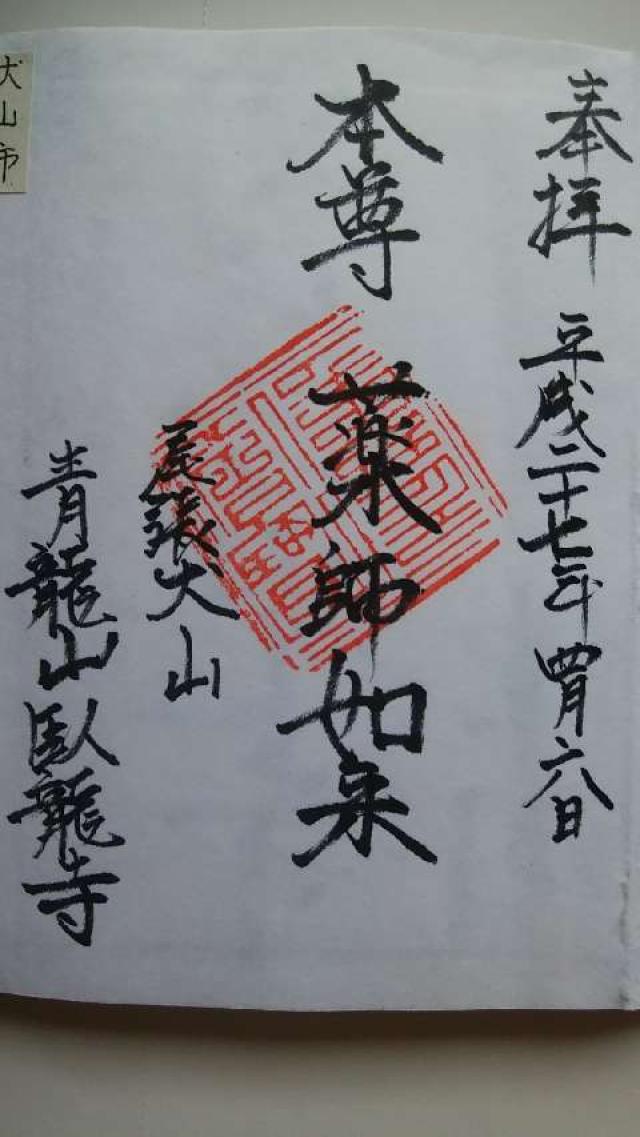 奉拝 平成二十七年四月六日
本尊 薬師如来
尾張犬山
青龍山臥龍寺
犬山市